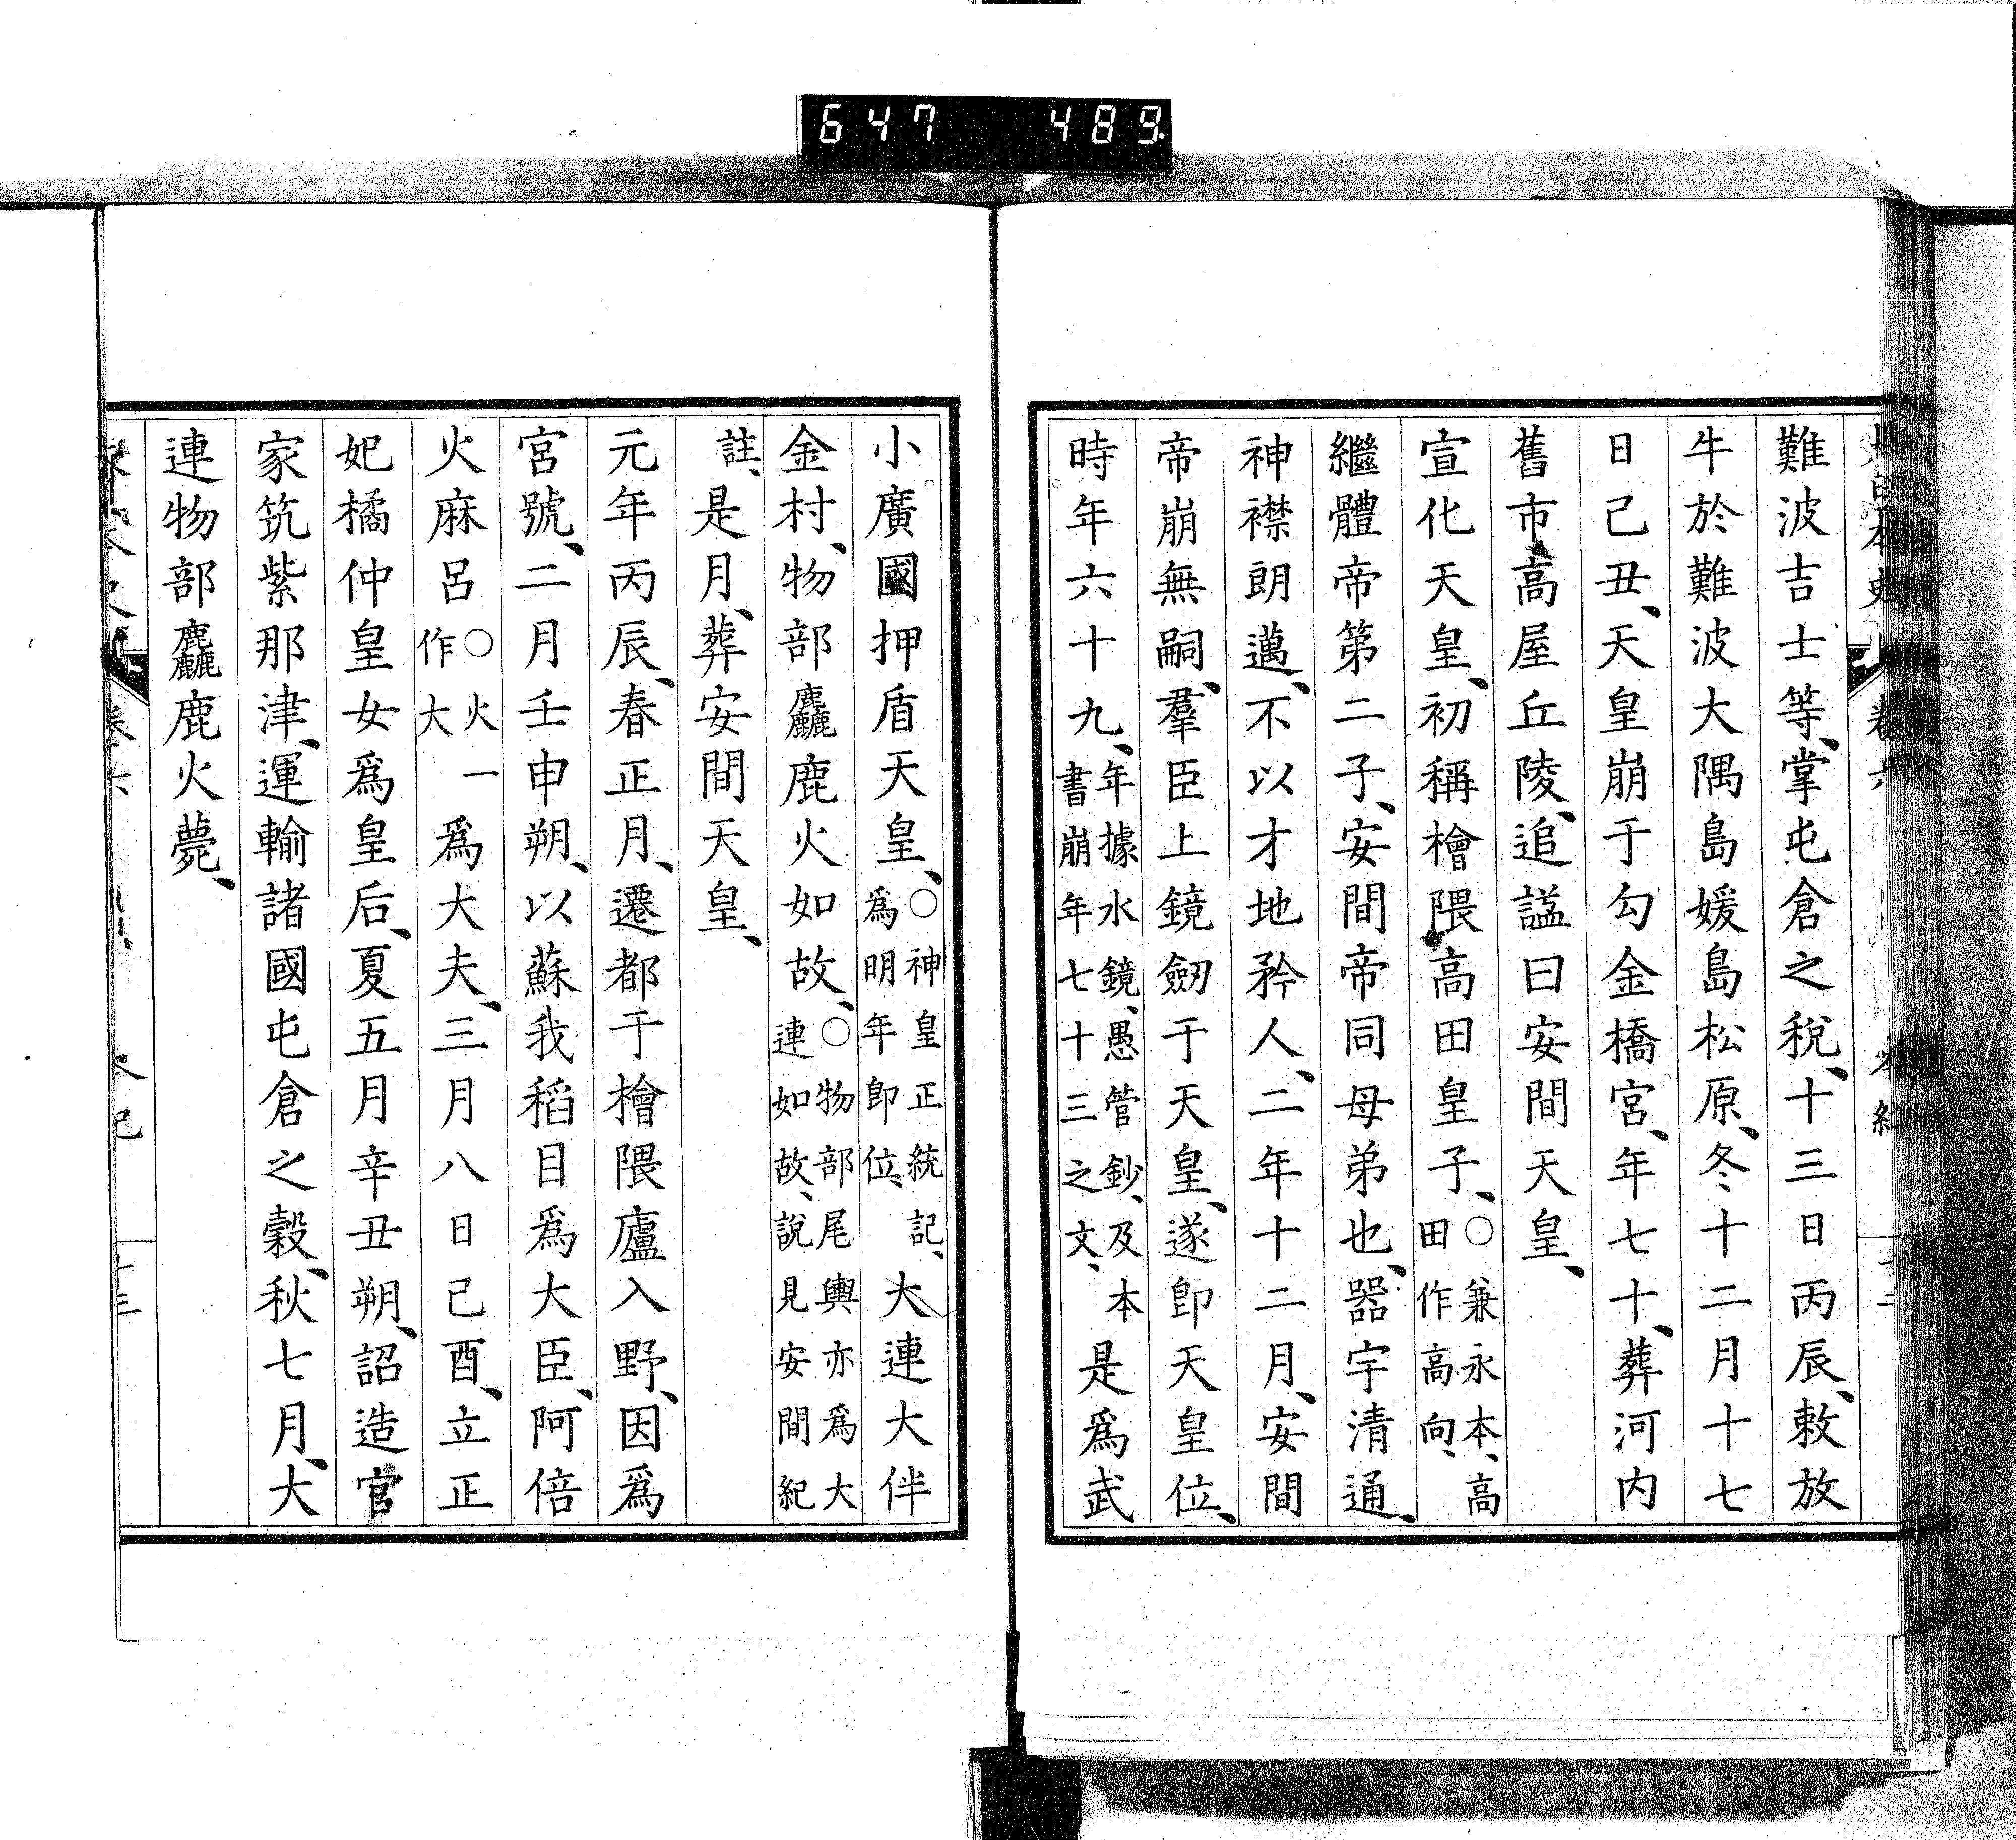 647 489
難波吉士等、掌屯倉之稅、十三日丙辰、敕放
牛於難波大隅島媛島松原、冬十二月十七
日己丑、天皇崩于勾金橋宮、年七十、葬河内
舊市高屋丘陵、追諡曰安間天皇、
宣化天皇、初稱檜隈高田皇子、○兼永本、高田作高向、
繼體帝第二子、安間帝同母弟也、器宇清通、
神襟朗邁、不以才地矜人、二年十二月、安間
帝崩無嗣、羣臣上鏡劔于天皇、遂即天皇位、
時年六十九、年據水鏡、愚管鈔、及本書崩年七十三之文、是爲武
小廣國押盾天皇、○神皇正統記、爲明年即位、大連大伴
金村、物部麤鹿火如故、○物部尾輿亦爲大連如故、說見安間紀
註、是月、葬安間天皇、
元年丙辰、春正月、遷都于檜隈廬入野、因爲
宮號、二月壬申朔、以蘇我稻目爲大臣、阿倍
火麻呂○火一作大爲大夫、三月八日己酉、立正
妃橘仲皇女爲皇后、夏五月辛丑朔、詔造官
家筑紫那津、運輸諸國屯倉之穀、秋七月、大
連物部麤鹿火薨、